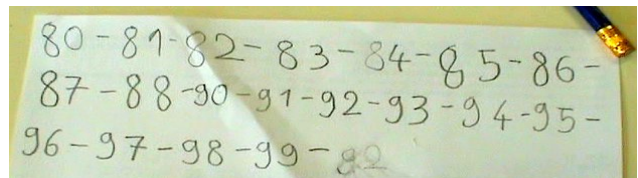 80-81-82-83-84-85-86-
87-88-90-91-92-93-94-95-
96-97-98-99-